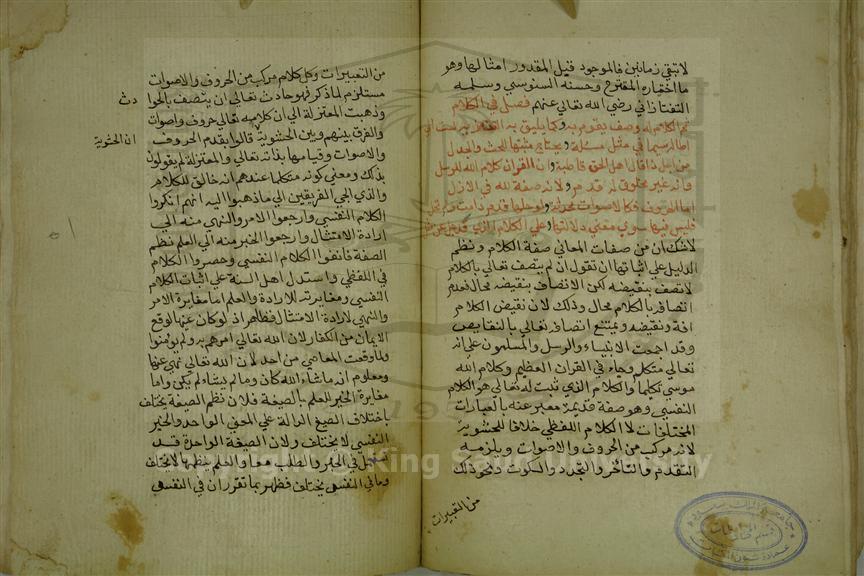 لا تبقى زمانين فالموجود قبل المقدور امثالها وهو
ما اختاره المقترح وحسنه السنوسي وسلمه
التفتازاني رضي الله تعالى عنهم فصل في الكلام
ثم الكلام له وصف يقوم به وكما يليق به
من اجل ذا قال اهل الحق قاطبة وان القران كلام الله للرسل
وانه غير مخلوق لم قدم ولانه صفة لله في الازل
اما الحروف فكالاصوات محدثة
فليس فيها سوى معنى دلالتها على الكلام الذي
لا شك ان من صفات المعاني صفة الكلام ونظم
الدليل على اثباتها ان تقول ان لم يتصف تعالى بالكلام
لاتصف بنقيضه لكن الاتصاف بنقيضه محال فعدم
اتصافه بالكلام محال وذلك لان نقيض الكلام
افة ونقيضه ويمتنع اتصافه تعالى بالنقايص
وقد اجمعت الانبياء والرسل والمسلمون على انه
تعالى متكلم وجاء في القران العظيم وكلم الله
موسى تكليما والكلام الذي ثبت له تعالى هو الكلام
النفسي وهو صفة قديمة معبر عنه بالعبارات
المختلفات لا الكلام اللفظي خلافا للحشوية
لانه مركب من الحروف والاصوات ويلزمه
التقدم والتأخر والتجدد والسكوت ونحو ذلك
من التعبيرات
من التعبيرات وكل كلام مركب من الحروف والاصوات
مستلزم لما ذكر فهو حادث تعالى ان يتصف بالحوا
دث
وذهبت المعتزلة الى ان كلامه تعالى حروف واصوات
والفرق بينهم وبين الحشوية قالوا بقدم الحروف
ان الحشوية
والاصوات وقيامها بذاته تعالى والمعتزلة لم يقولوا
بذلك ومعنى كونه متكلما عندهم انه خالق للكلام
والذي الجى الفريقين الى ما ذهبوا اليه انهم انكروا
الكلام النفسي وارجعوا الامر والنهي منه الى
ارادة الامتثال وارجعوا الخبر منه الى العلم نظم
الصفة فانفوا الكلام النفسي وحصروا الكلام
في اللفظي واستدل اهل السنة على اثبات الكلام
النفسي ومغايرته للارادة والعلم اما مغايرة الامر
والنهي لارادة الامتثال فظاهر اذ لو كان عينها لوقع
الايمان من الكفار لان الله تعالى امرهم به ولم يومنوا
ولما وقعت المعاصي من احد لان الله تعالى نهى عنها
ومعلوم انه ما شاء الله كان وما لم يشاء لم يكن واما
مغايرة الخبر للعلم بالصيغة فلان نظم الصيغة يختلف
باختلاف الصيغ الدالة على المعنى الواحد والخبر
النفسي لا يختلف ولان الصيغة الواحدة قد
تستعمل في الخبر والطلب معا والعلم بنظمها لا يختلف
وما في النفسي يختلف فظهر بما تقرر ان في النفسي
Copyright © King Saud University